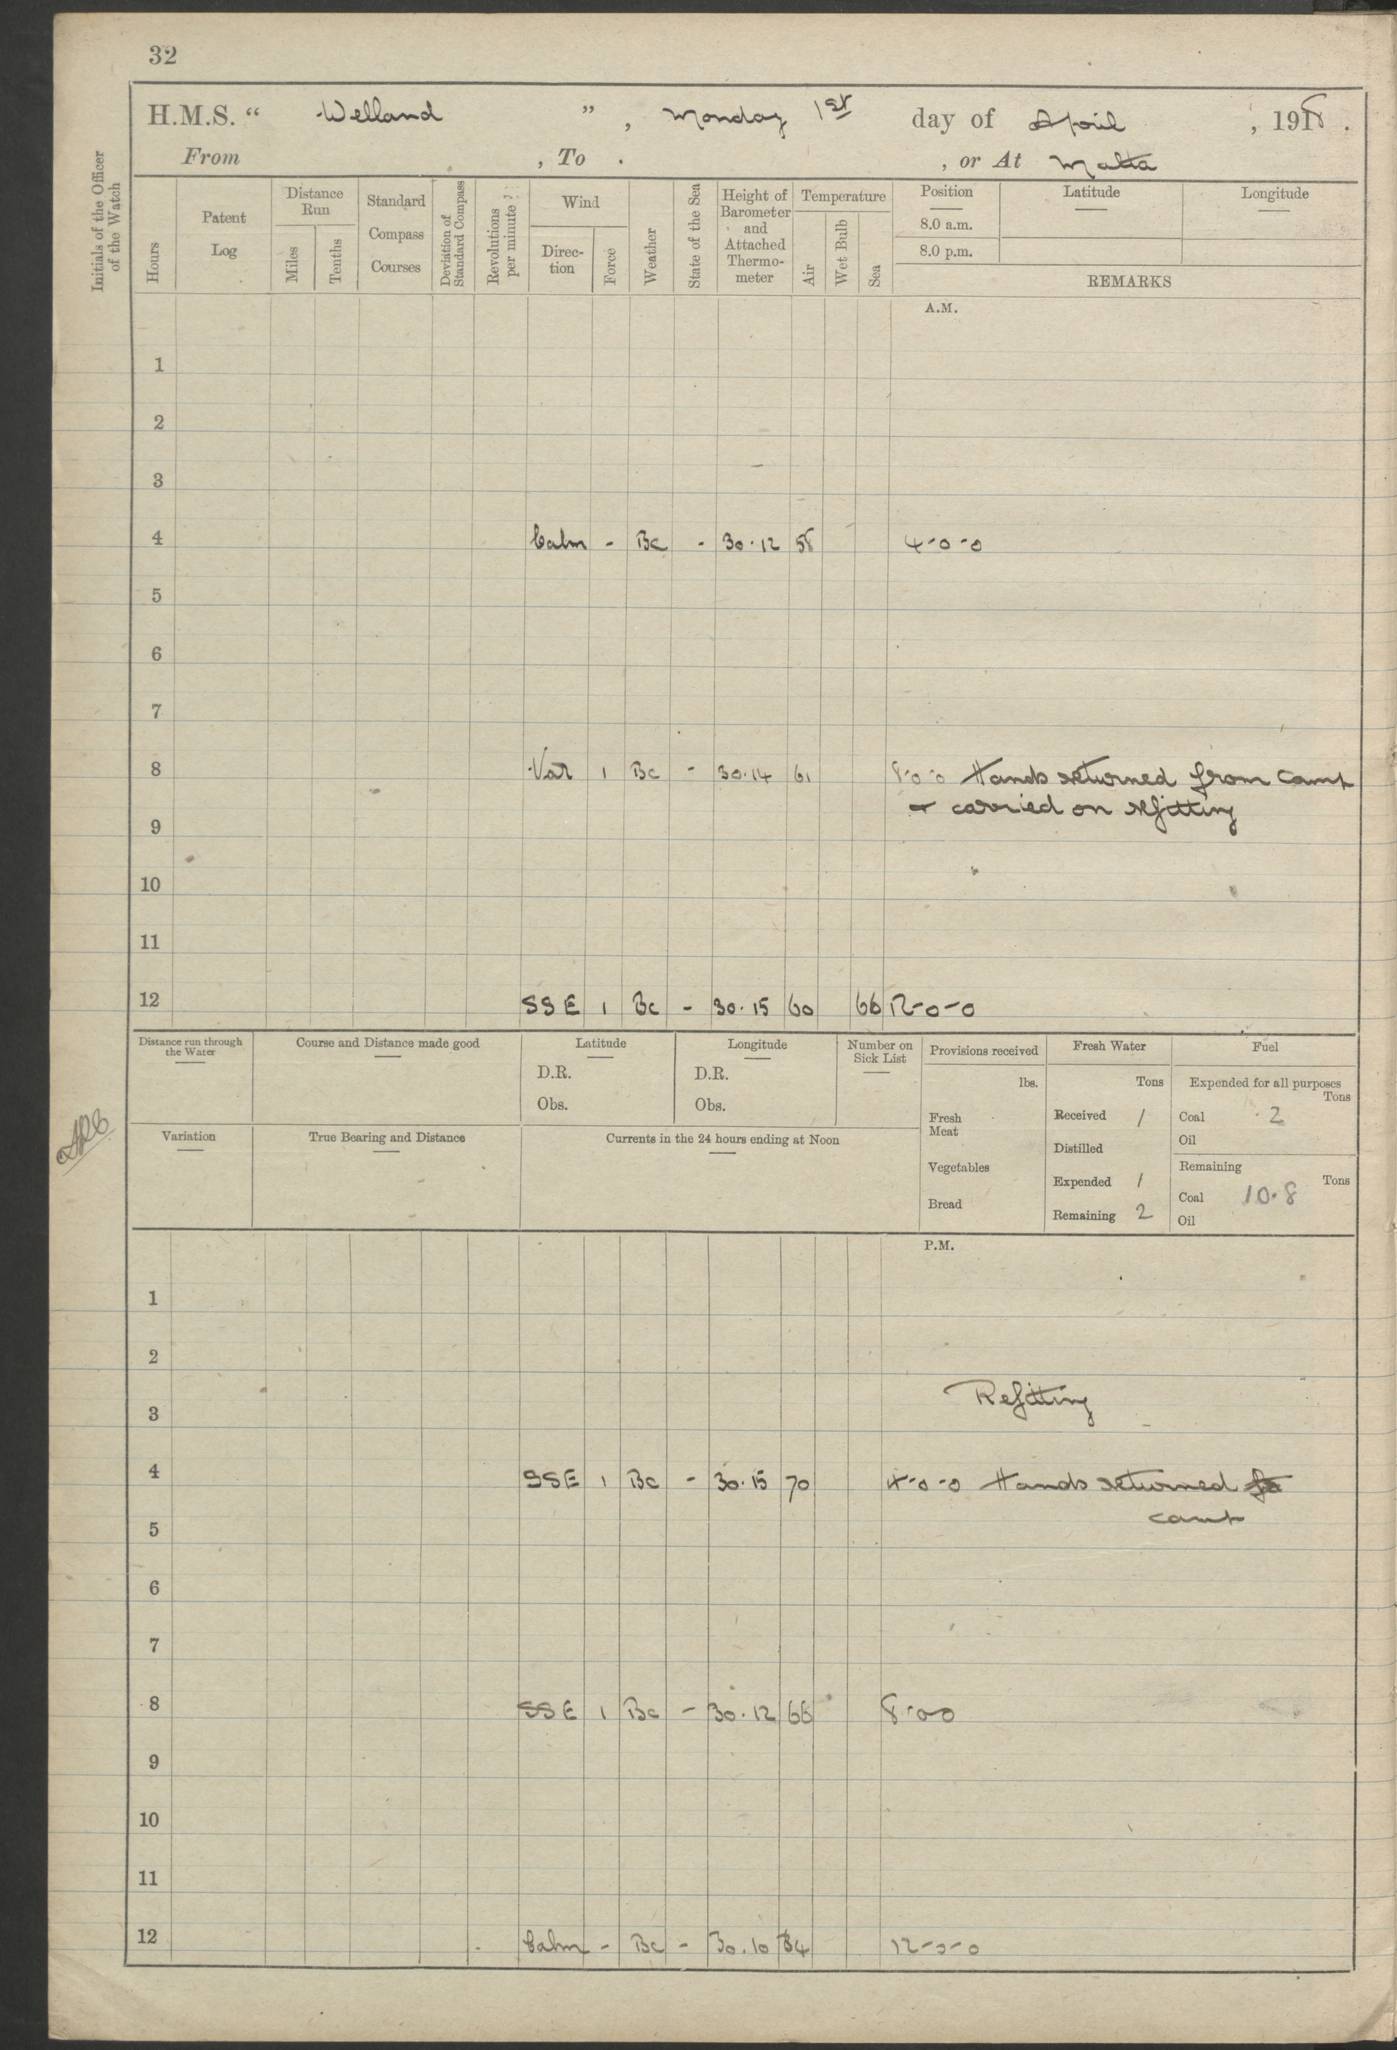 32
H.M.S. “ Welland ”, Monday 1st day of April, 1918.
From , To . , or At Malta
Initials of the Officer of the Watch
Hours
Patent Log
Distance Run
Miles
Tenths
Standard Compass Courses
Deviation of Standard Compass
Revolutions per minute
Wind
Direc-tion
Force
Weather
State of the Sea
Height of Barometer and Attached Thermo-meter
Temperature
Air
Wet Bulb
Sea
Position
8.0 a.m.
8.0 p.m.
Latitude
Longitude
REMARKS
A.M.
1
2
3
4 Calm - Bc - 30.12 58 4-0-0
5
6
7
8 Var 1 Bc - 30.14 61 8-0-0 Hands returned from camp
& carried on refitting
9
10
11
12 SSE 1 Bc - 30.15 60 66 12-0-0
Distance run through the Water
Course and Distance made good
Latitude
D.R.
Obs.
Longitude
D.R.
Obs.
Number on Sick List
Provisions received
lbs.
Fresh Meat
Vegetables
Bread
Fresh Water
Tons
Received 1
Distilled
Expended 1
Remaining 2
Fuel
Expended for all purposes
Tons
Coal .2
Oil
Remaining
Tons
Coal 10.8
Oil
Variation
True Bearing and Distance
Currents in the 24 hours ending at Noon
P.M.
1
2
Refitting
3
4 SSE 1 Bc - 30.15 70 4-0-0 Hands returned to
camp
5
6
7
8 SSE 1 Bc - 30.12 66 8-00
9
10
11
12 Calm - Bc - 30.10 64 12-0-0